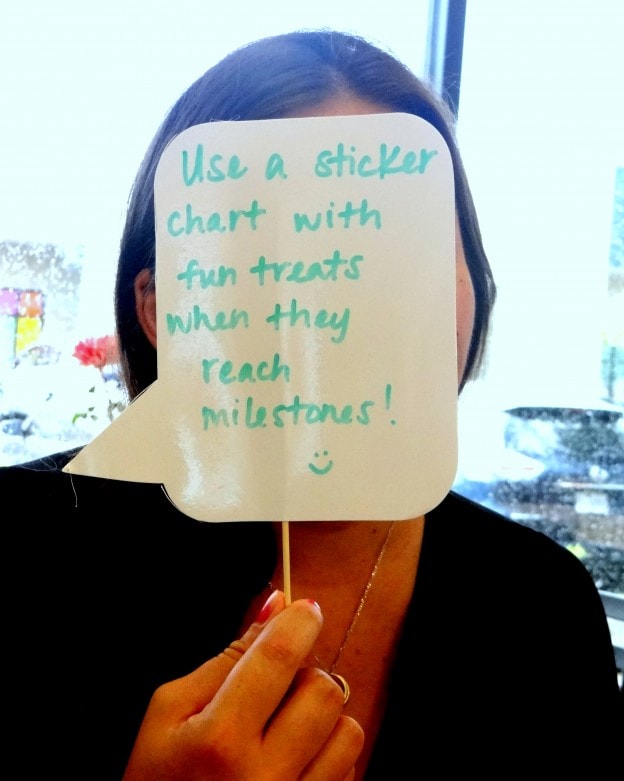 Use a sticker
chart with
fun treats
when they
reach
milestones!